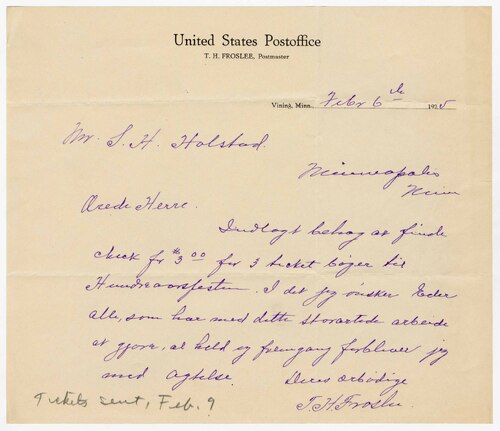 United States Postoffice
T. H. FROSLEE, Postmaster
Vining, Minn., Febr 6th 1925
Mr. S. H. Holstad.
Minneapolis
Minn
Ærede Herre.
Indlagt behag at finde
check for $3.00 for 3 ticket bøger til
Hundreaarsfesten. I det jeg ønsker Eder
alle, som har med dette storartede arbeide
at gjøre, al held og fremgang forbliver jeg
med agtelse. Deres ærbödige
T. H. Froslee
Tickets sent, Feb. 9